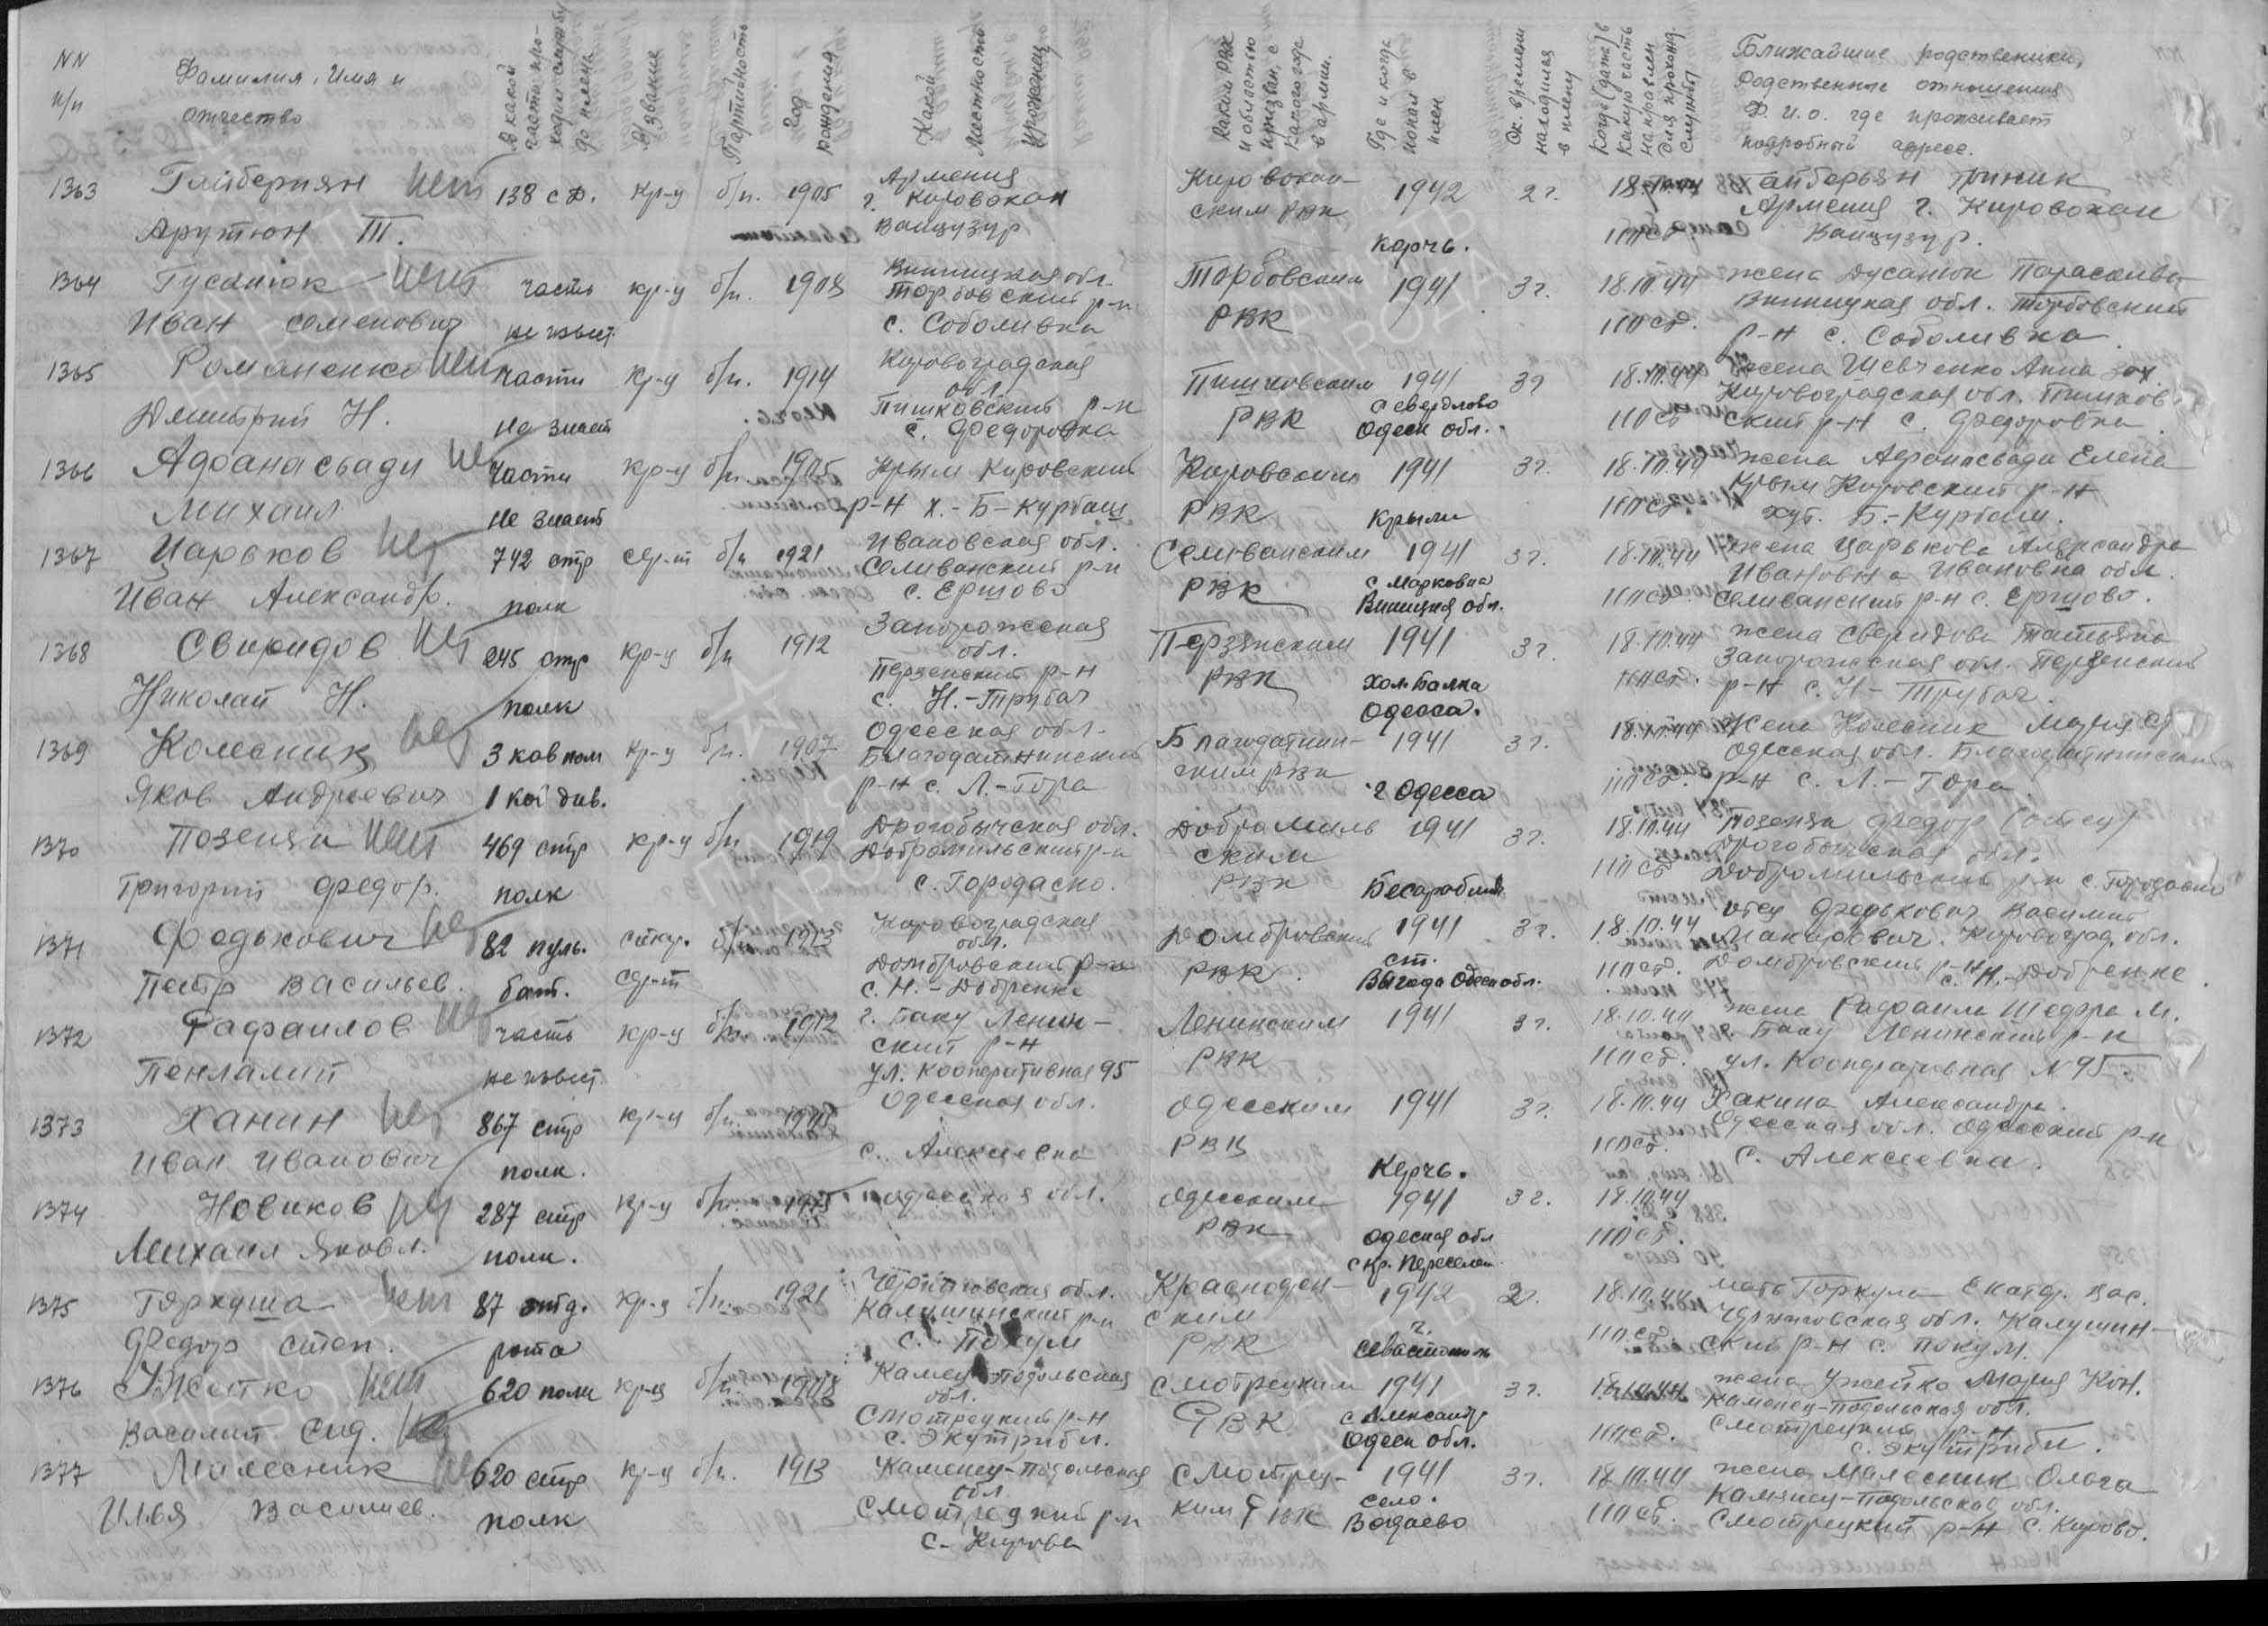 NN п/п
Фамилия, Имя и отчество
В какой части проходил службу до плена
В/звание
Партийность
Год рождения
Какой местности уроженец
Каким РВК и областью призван, с какого года в армии.
Где и когда попал в плен
Ск. времени находился в плену
Когда (дата) в какую часть направлен для прохожд. службы
Ближайшие родственики, Родственные отношения Ф.И.О. где проживает подробный адрес.
1363 Гайбериян Арутюн Т. нет 138 с.д. кр-ц б/п. 1905 Армения г. Кировокан Ванцузур Кировокан-ским РВК 1942 Керчь. 2 г. 18.10.44 11 ПСд. Гайберьян Армения г. Кировокан Ванцузур.
1364 Гусанюк Иван Семенович нет часть не извест. кр-ц б/п. 1908 Винницкая обл. Торбовский р-н с. Соболивка Торбовским РВК 1941 3 г. 18.10.44 11 ПСд. жена Дусанюк Параскива Винницкая обл. Торбовский р-н с. Соболивка.
1365 Романенко Дмитрий Н. нет части не знает кр-ц б/п. 1914 Кировоградская обл. Пишковский р-н с. Федоровка Пишковским РВК 1941 с Свердлово Одеск обл. 3 г 18.10.44 11 ПСд жена Шевченко Анна Зах. Кировоградская обл. Пишковский р-н с. Федоровка.
1366 Адоанасьади Михаил части не знает кр-ц б/п. 1905 Крым Кировский р-н х.-Б-Курбаш Кировским РВК 1941 Крым 3 г. 18.10.44 11 ПСд. жена Елена Крым Кировский р-н хут. Б.-Курбаш.
1367 Царьков Иван Александр. нет 742 стр полк сер-т б/п 1921 Ивановская обл. Селиванский р-н с. Ершово Селиванским РВК 1941 с Марковка Виницкя обл. 3 г. 18.10.44 11 ПСд. жена Царькова Александра Ивановна Ивановка обл. Селиванский р-н с. Ершово.
1368 Свиридов Николай Н. нет 245 стр полк кр-ц б/п 1912 Запорожская обл. Перзенский р-н с. Н.-Трубач Перзянским РВК 1941 Хол. Балка Одесса. 3 г. 18.10.44 11 ПСд. жена Сверидова Татьяна Запорожская обл. Перзенский р-н с. Н-Трубач.
1369 Колесник Яков Андреевич нет 3 кав полк 1 кав див. кр-ц б/п. 1907 Одесская обл. Благодатнинский р-н с. Л.-Гора Благодатнин-ским РВК 1941 г Одесса 3 г. 18.10.44 11 ПСд. жена Колесник Мария Одесская обл. Благодатнинский р-н с. Л.-Гора.
1370 Позеняк Григорий Федор. нет 469 стр полк кр-ц б/п 1919 Дрогобычская обл. Добромильский р-н с. Городаско. Добромильским РВК 1941 Бесарабия 3 г. 18.10.44 11 ПСд Федор (отец) Дрогобычская обл. Добромильский р-н
1371 Федькович Петр Васильев. нет 82 пуль. бат. сер-т б/п 1913 Кировоградская обл. Домбровский р-н с. Н.-Добренке Домбровский РВК 1941 ст. Выгода Одеск обл. 3 г. 18.10.44 11 ПСд. отец Федькович Василий Макарович. Кировоград. обл. Домбровский р-н с. Н.-Добренке.
1372 Рафаилов Пенлалий часть не извест. кр-ц б/п. 1912 г. Баку Ленин-ский р-н ул. Кооперативная 95 Ленинским РВК 1941 3 г. 18.10.44 11 ПСд. жена Рафаилм М. Баку Ленинский р-н ул. Кооперативная N 95.
1373 Ханин Иван Иванович нет 867 стр полк. кр-ц б/п. Одесская обл. с. Алексеевка Одесским РВК 1941 Керчь. 3 г. 18.10.44 11 ПСд. Хакина Александра. Одесская обл. Одесский р-н с. Алексеевка.
1374 Новиков Михаил Яковл. 287 стр полк. кр-ц б/п. Одесская обл. Одесским РВК 1941 Одеская обл с Кр. Переселен. 3 г. 18.10.44 11 ПСд.
1375 Горкуша Федор Степ. нет 87 отд. рота кр-ц 1921 Черниговская обл. Калушинский р-н с. Покум Красноден-ским РВК 1942 г. Севастополь 2 г. 18.10.44 11 ПСд мать Екатер. Вас. Черниговская обл. Калушин-ский р-н с. Покум.
1376 Ужейко Василий Сид. нет 620 полк кр-ц б/п. Камен-Подольская обл. Смотрецкий р-н Смотрецким РВК 1941 с Александр Одеск обл. 3 г. 18.10.44 11 ПСд. жена Ужейко Мария Кон. Каменец-Подольская обл. Смотрецкий р-н
1377 Малесник Илья Василиев. 620 стр полк кр-ц б/п. 1913 Каменец-Подольская обл. Смотрецкий р-н с. Кирова Смотрец-ким РВК 1941 село. Водаево 3 г. 18.10.44 11 ПСд. жена Малесник Ольга Каменец-Подольская обл. Смотрецкий р-н с. Кирово.